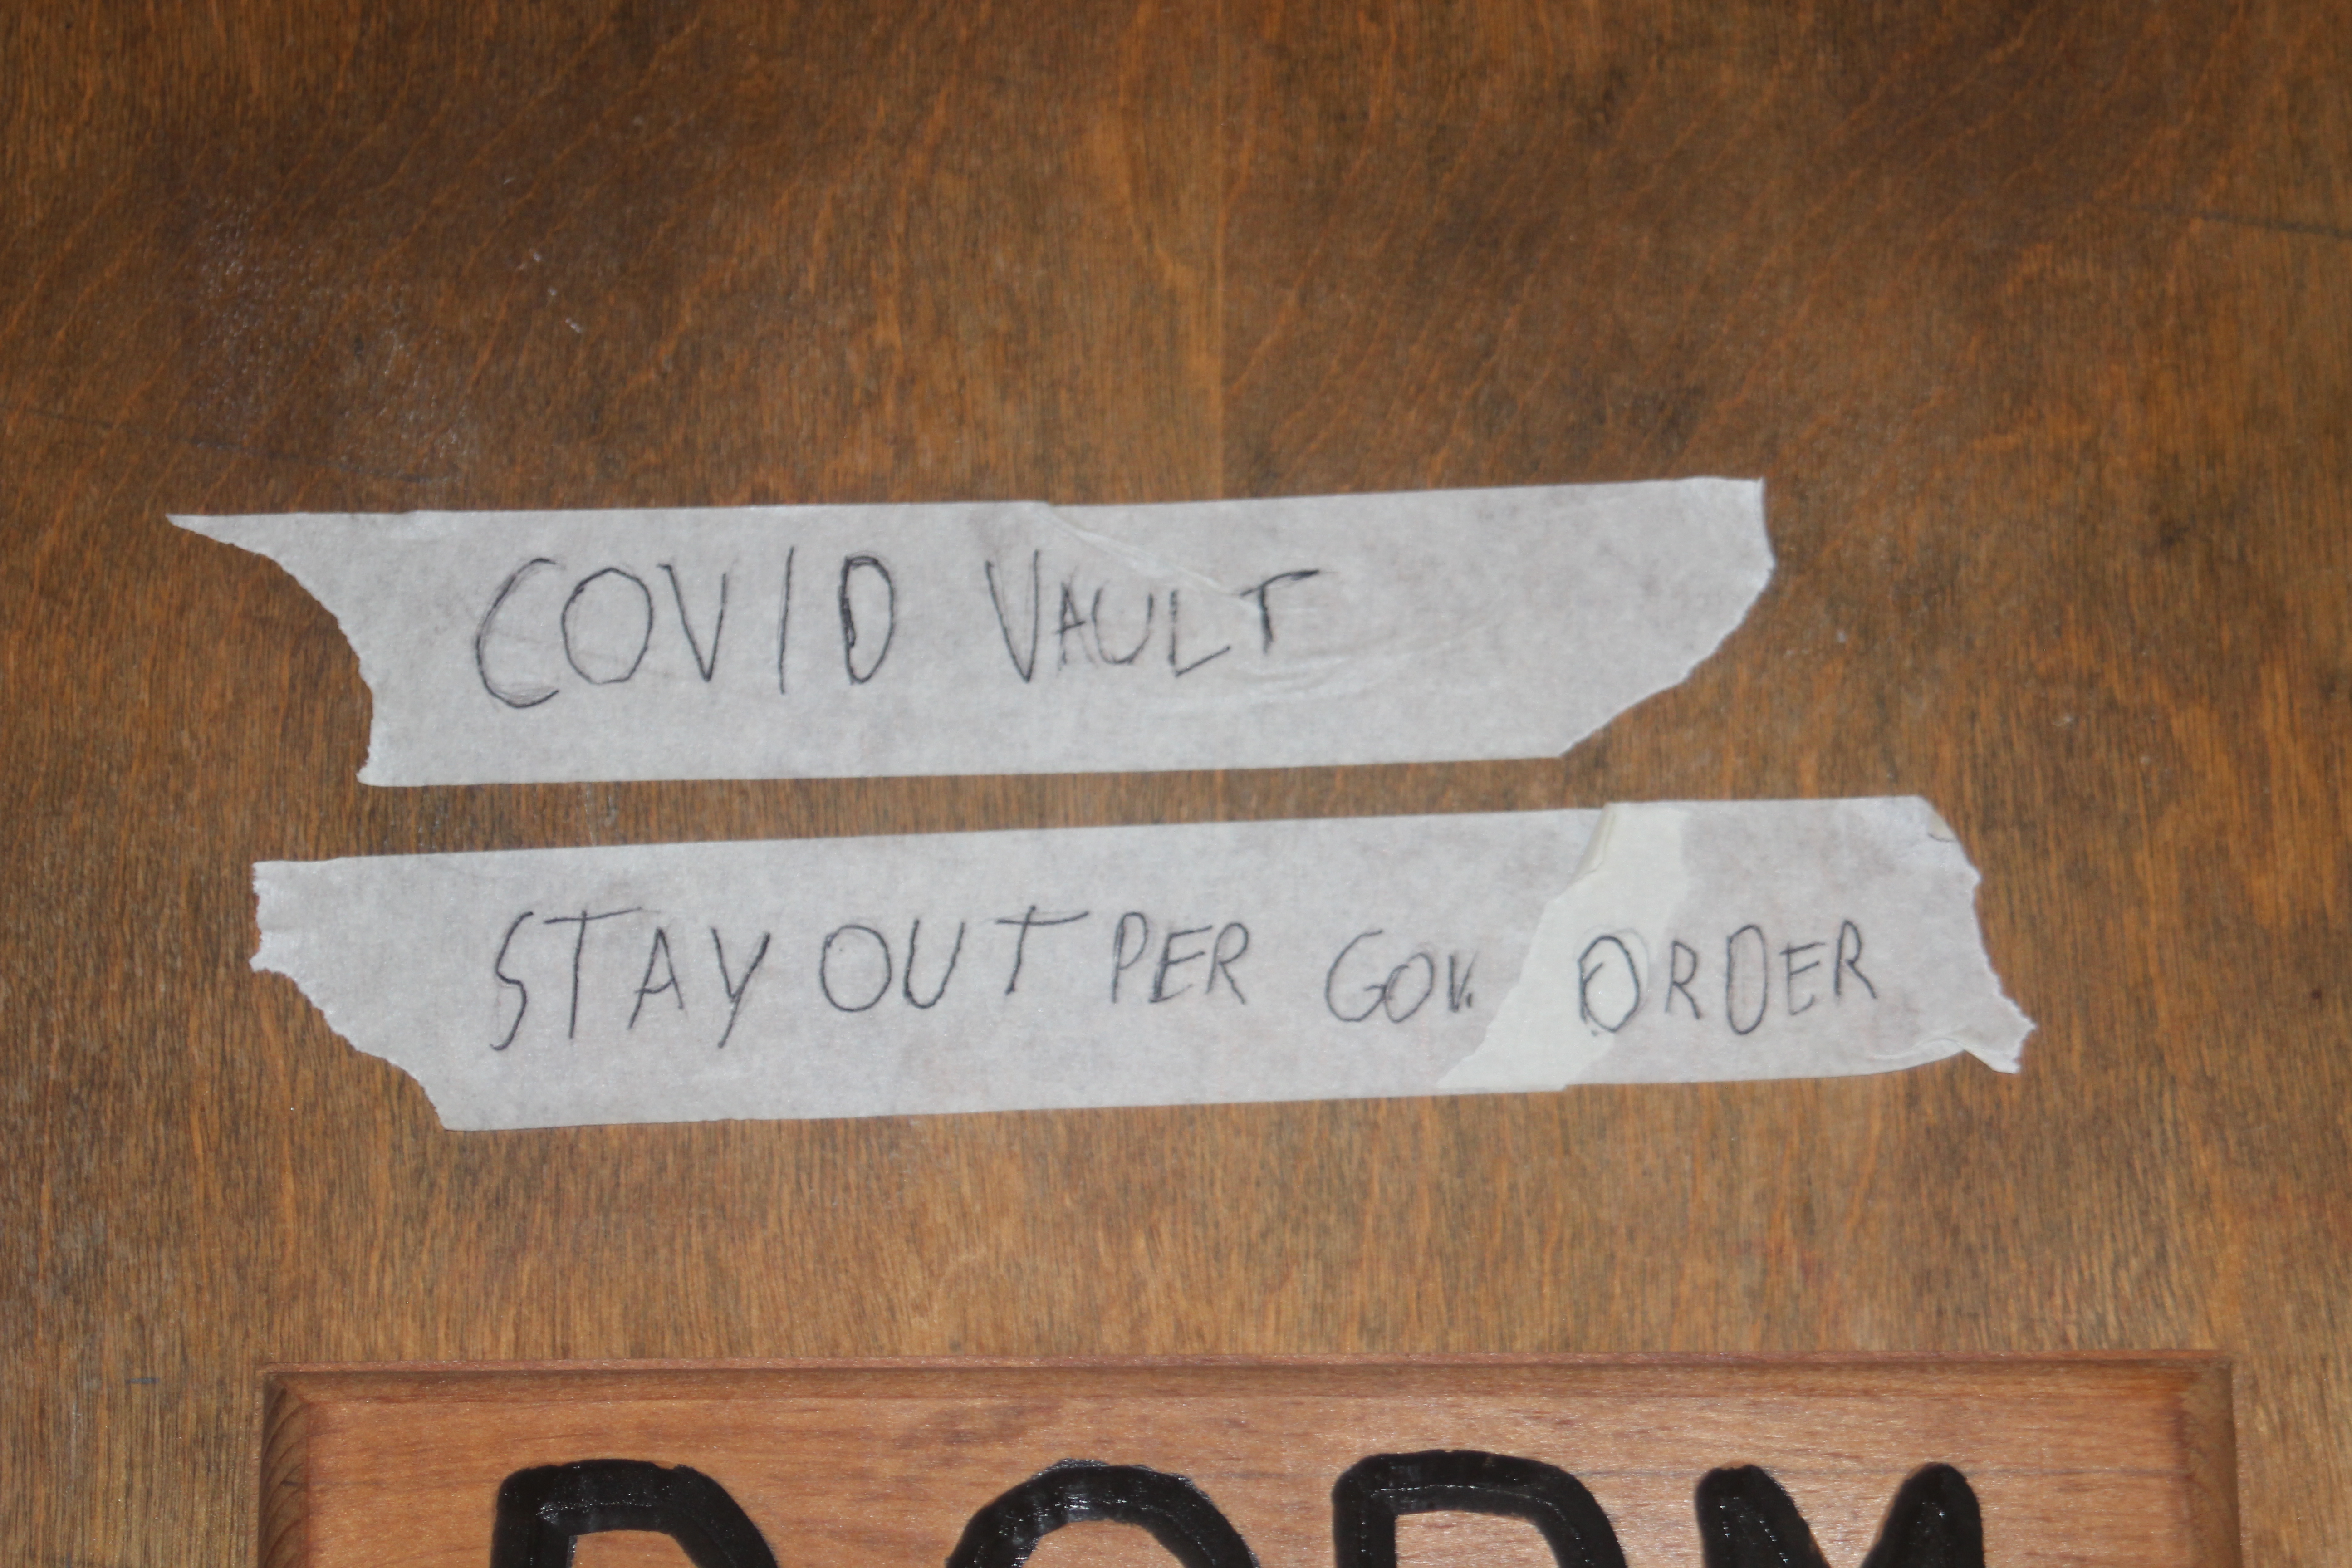 COVID VAULT
STAY OUT PER GOV. ORDER
DORM